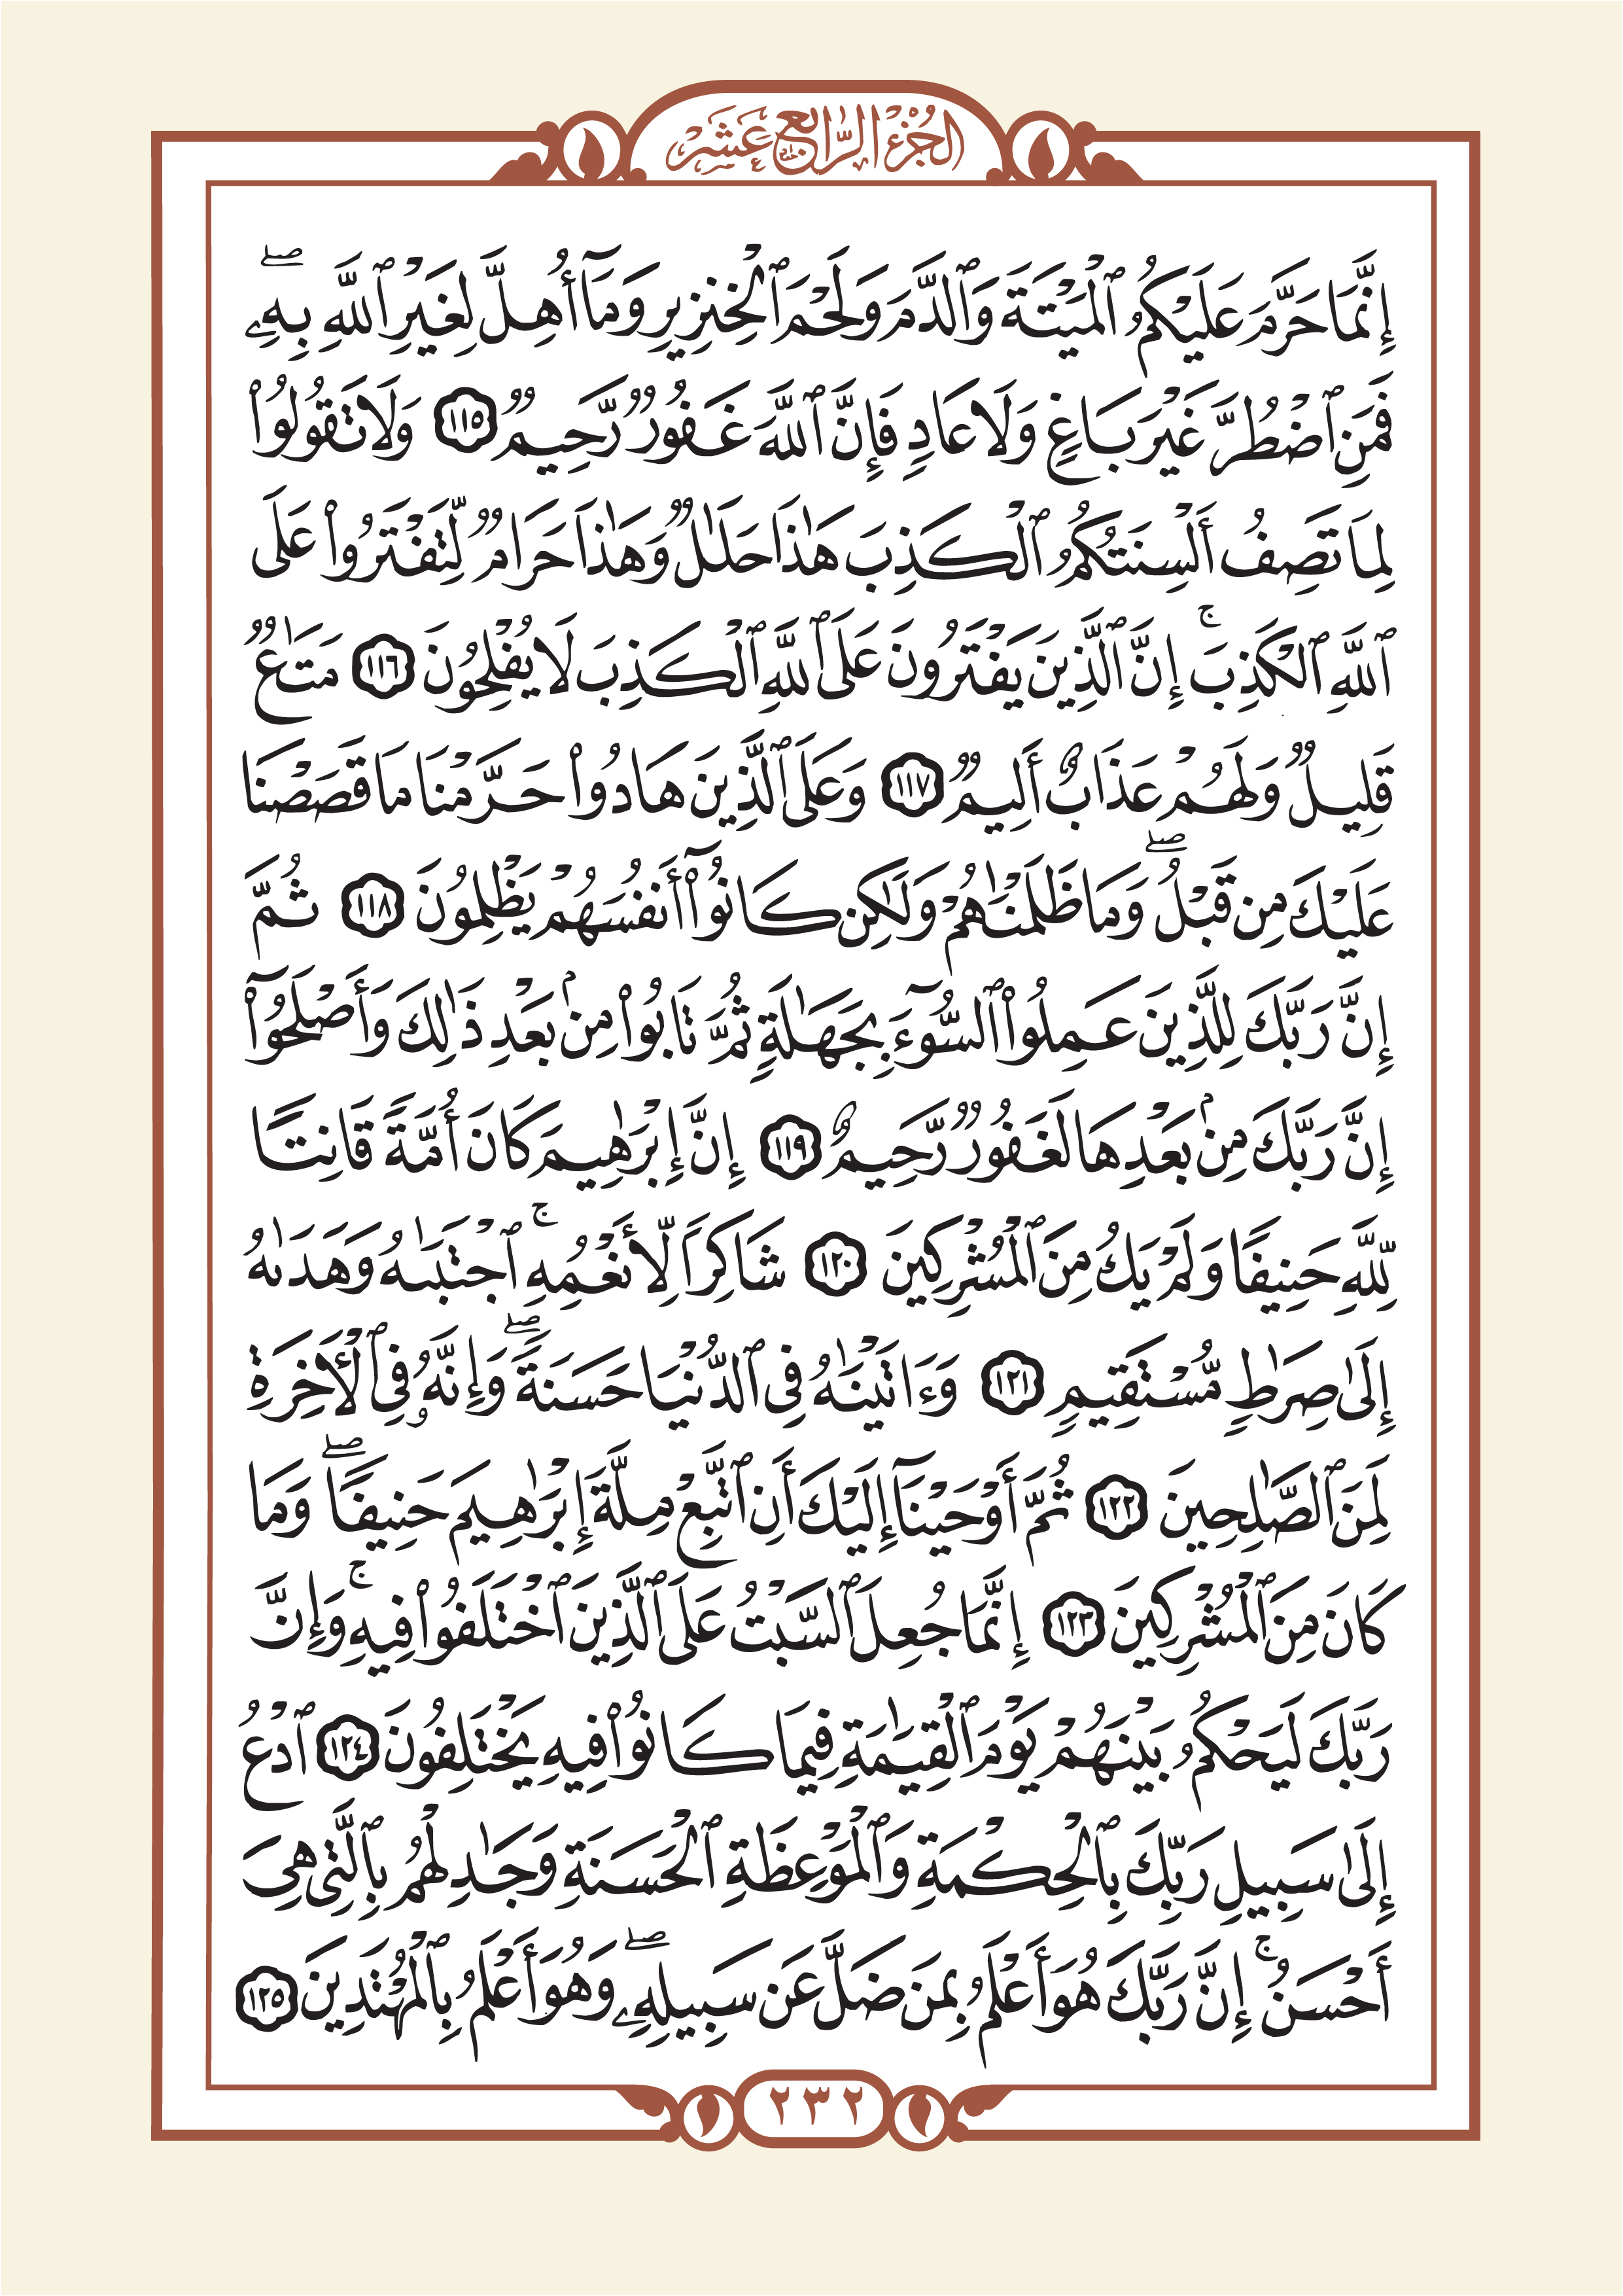 الجزء الرابع عشر
إِنَّمَا حَرَّمَ عَلَيْكُمُ ٱلْمَيْتَةَ وَٱلدَّمَ وَلَحْمَ ٱلْخِنزِيرِ وَمَآ أُهِلَّ لِغَيْرِ ٱللَّهِ بِهِۦ ۖ
فَمَنِ ٱضْطُرَّ غَيْرَ بَاغٍ وَلَا عَادٍ فَإِنَّ ٱللَّهَ غَفُورٌ رَّحِيمٌ ١١٥ وَلَا تَقُولُوا۟
لِمَا تَصِفُ أَلْسِنَتُكُمُ ٱلْكَذِبَ هَٰذَا حَلَٰلٌ وَهَٰذَا حَرَامٌ لِّتَفْتَرُوا۟ عَلَى
ٱللَّهِ ٱلْكَذِبَ ۚ إِنَّ ٱلَّذِينَ يَفْتَرُونَ عَلَى ٱللَّهِ ٱلْكَذِبَ لَا يُفْلِحُونَ ١١٦ مَتَٰعٌ
قَلِيلٌ وَلَهُمْ عَذَابٌ أَلِيمٌ ١١٧ وَعَلَى ٱلَّذِينَ هَادُوا۟ حَرَّمْنَا مَا قَصَصْنَا
عَلَيْكَ مِن قَبْلُ ۖ وَمَا ظَلَمْنَٰهُمْ وَلَٰكِن كَانُوٓا۟ أَنفُسَهُمْ يَظْلِمُونَ ١١٨ ثُمَّ
إِنَّ رَبَّكَ لِلَّذِينَ عَمِلُوا۟ ٱلسُّوٓءَ بِجَهَٰلَةٍ ثُمَّ تَابُوا۟ مِنۢ بَعْدِ ذَٰلِكَ وَأَصْلَحُوٓا۟
إِنَّ رَبَّكَ مِنۢ بَعْدِهَا لَغَفُورٌ رَّحِيمٌ ١١٩ إِنَّ إِبْرَٰهِيمَ كَانَ أُمَّةً قَانِتًا
لِّلَّهِ حَنِيفًا وَلَمْ يَكُ مِنَ ٱلْمُشْرِكِينَ ١٢٠ شَاكِرًا لِّأَنْعُمِهِ ۚ ٱجْتَبَىٰهُ وَهَدَىٰهُ
إِلَىٰ صِرَٰطٍ مُّسْتَقِيمٍ ١٢١ وَءَاتَيْنَٰهُ فِى ٱلدُّنْيَا حَسَنَةً ۖ وَإِنَّهُۥ فِى ٱلْأَخِرَةِ
لَمِنَ ٱلصَّٰلِحِينَ ١٢٢ ثُمَّ أَوْحَيْنَآ إِلَيْكَ أَنِ ٱتَّبِعْ مِلَّةَ إِبْرَٰهِيمَ حَنِيفًا ۖ وَمَا
كَانَ مِنَ ٱلْمُشْرِكِينَ ١٢٣ إِنَّمَا جُعِلَ ٱلسَّبْتُ عَلَى ٱلَّذِينَ ٱخْتَلَفُوا۟ فِيهِ ۚ وَإِنَّ
رَبَّكَ لَيَحْكُمُ بَيْنَهُمْ يَوْمَ ٱلْقِيَٰمَةِ فِيمَا كَانُوا۟ فِيهِ يَخْتَلِفُونَ ١٢٤ ٱدْعُ
إِلَىٰ سَبِيلِ رَبِّكَ بِٱلْحِكْمَةِ وَٱلْمَوْعِظَةِ ٱلْحَسَنَةِ وَجَٰدِلْهُم بِٱلَّتِى هِىَ
أَحْسَنُ ۚ إِنَّ رَبَّكَ هُوَ أَعْلَمُ بِمَن ضَلَّ عَن سَبِيلِهِۦ ۖ وَهُوَ أَعْلَمُ بِٱلْمُهْتَدِينَ ١٢٥
٢٣٢